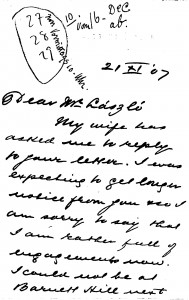 27
28
29
10
Dec
21 XI 07
Dear Mr László
My wife has
asked me to reply
to your letter. I was
expecting to get longer
notice from you & so I
am sorry to say that
I am rather full of
engagements now.
I could not be at
Barnett Hill next